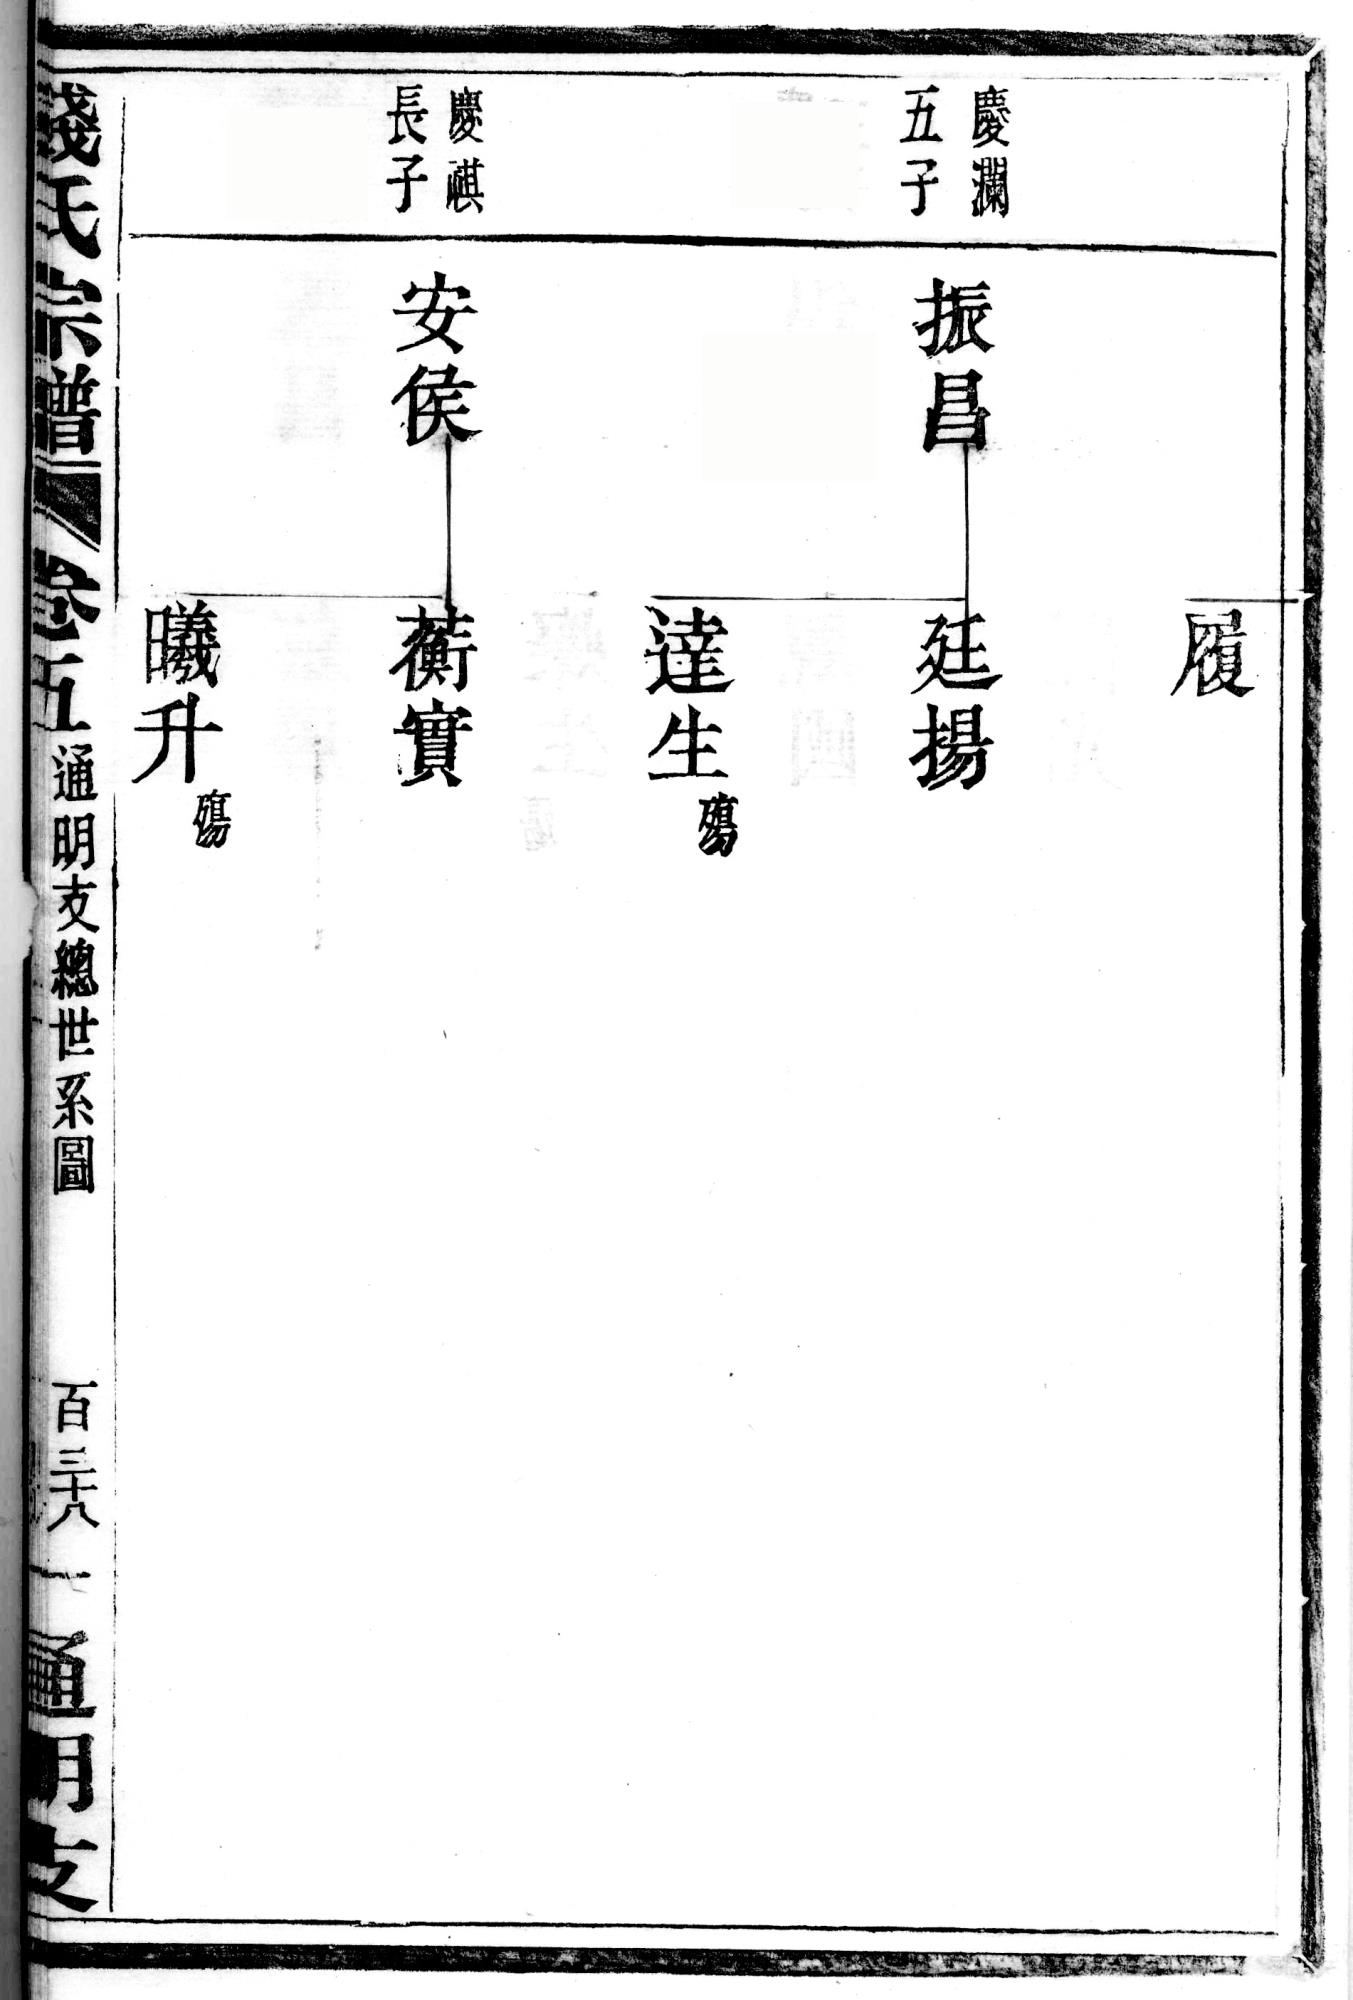 慶瀾
五子
慶祺
長子
振昌
安侯
履
廷揚
達生
殤
蘅實
曦升
殤
錢氏宗譜
卷五
通明支總世系圖
百三十八
通明支